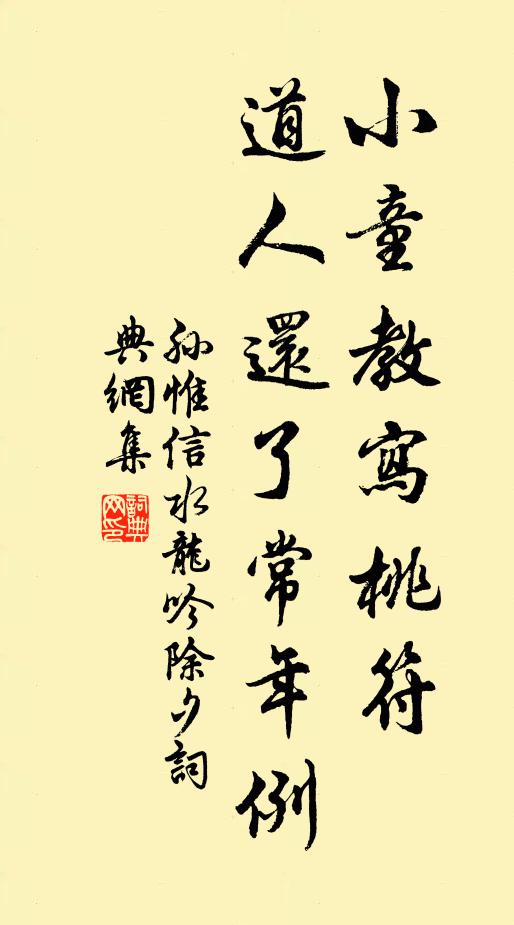 小童教寫桃符
道人還了常年例
孫惟信水龍吟除夕詞
典網集
詞典
网印